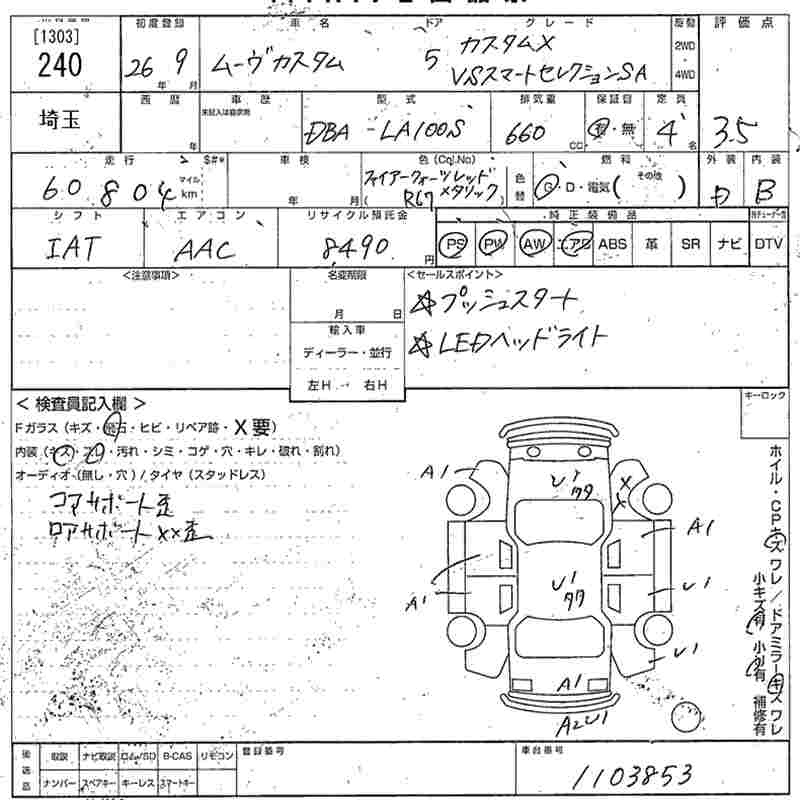 [1303]
240
初度登録 車名 ドア グレード 原動 評価点
26年 9月 ムーヴカスタム 5 カスタムX
VSスマートセレクションSA
2WD
4WD
埼玉
西暦 車歴 型式 排気量 保証書 定員
年 未記入は自家用 DBA-LA100S 660 CC 有・無 4名 3.5
走行 $#* 車検 色(Col.No) 燃料 外装 内装
60804 マイル km 年 月 ファイアークォーツレッド
R67 メタリック
色替 G・D・電気( その他 ) D B
シフト エアコン リサイクル預託金 純正装備品
IAT AAC 8490円 PS PW AW エアB ABS 革 SR ナビ DTV
<注意事項> 名変期限 <セールスポイント>
月 日 ☆プッシュスタート
輸入車 ☆LEDヘッドライト
ディーラー・並行
左H 右H
キーロック
<検査員記入欄>
Fガラス(キズ・飛石・ヒビ・リペア跡・X要)
内装(キズ・スレ・汚れ・シミ・コゲ・穴・キレ・破れ・割れ)
オーディオ(無し・穴)/タイヤ(スタッドレス)
コアサポート歪
ロアサポートXX歪
A1 U1 X
X
A1
A1 U1 U1
U1
A1
A2U1
ホイル・CPキズ ワレ/ドアミラーキズ ワレ
小キズ有 小凹有 補修有
後送品 取説 ナビ取説 B-CAS リモコン
ナンバー スペアキー キーレス スマートキー
登録番号 車台番号
1103853